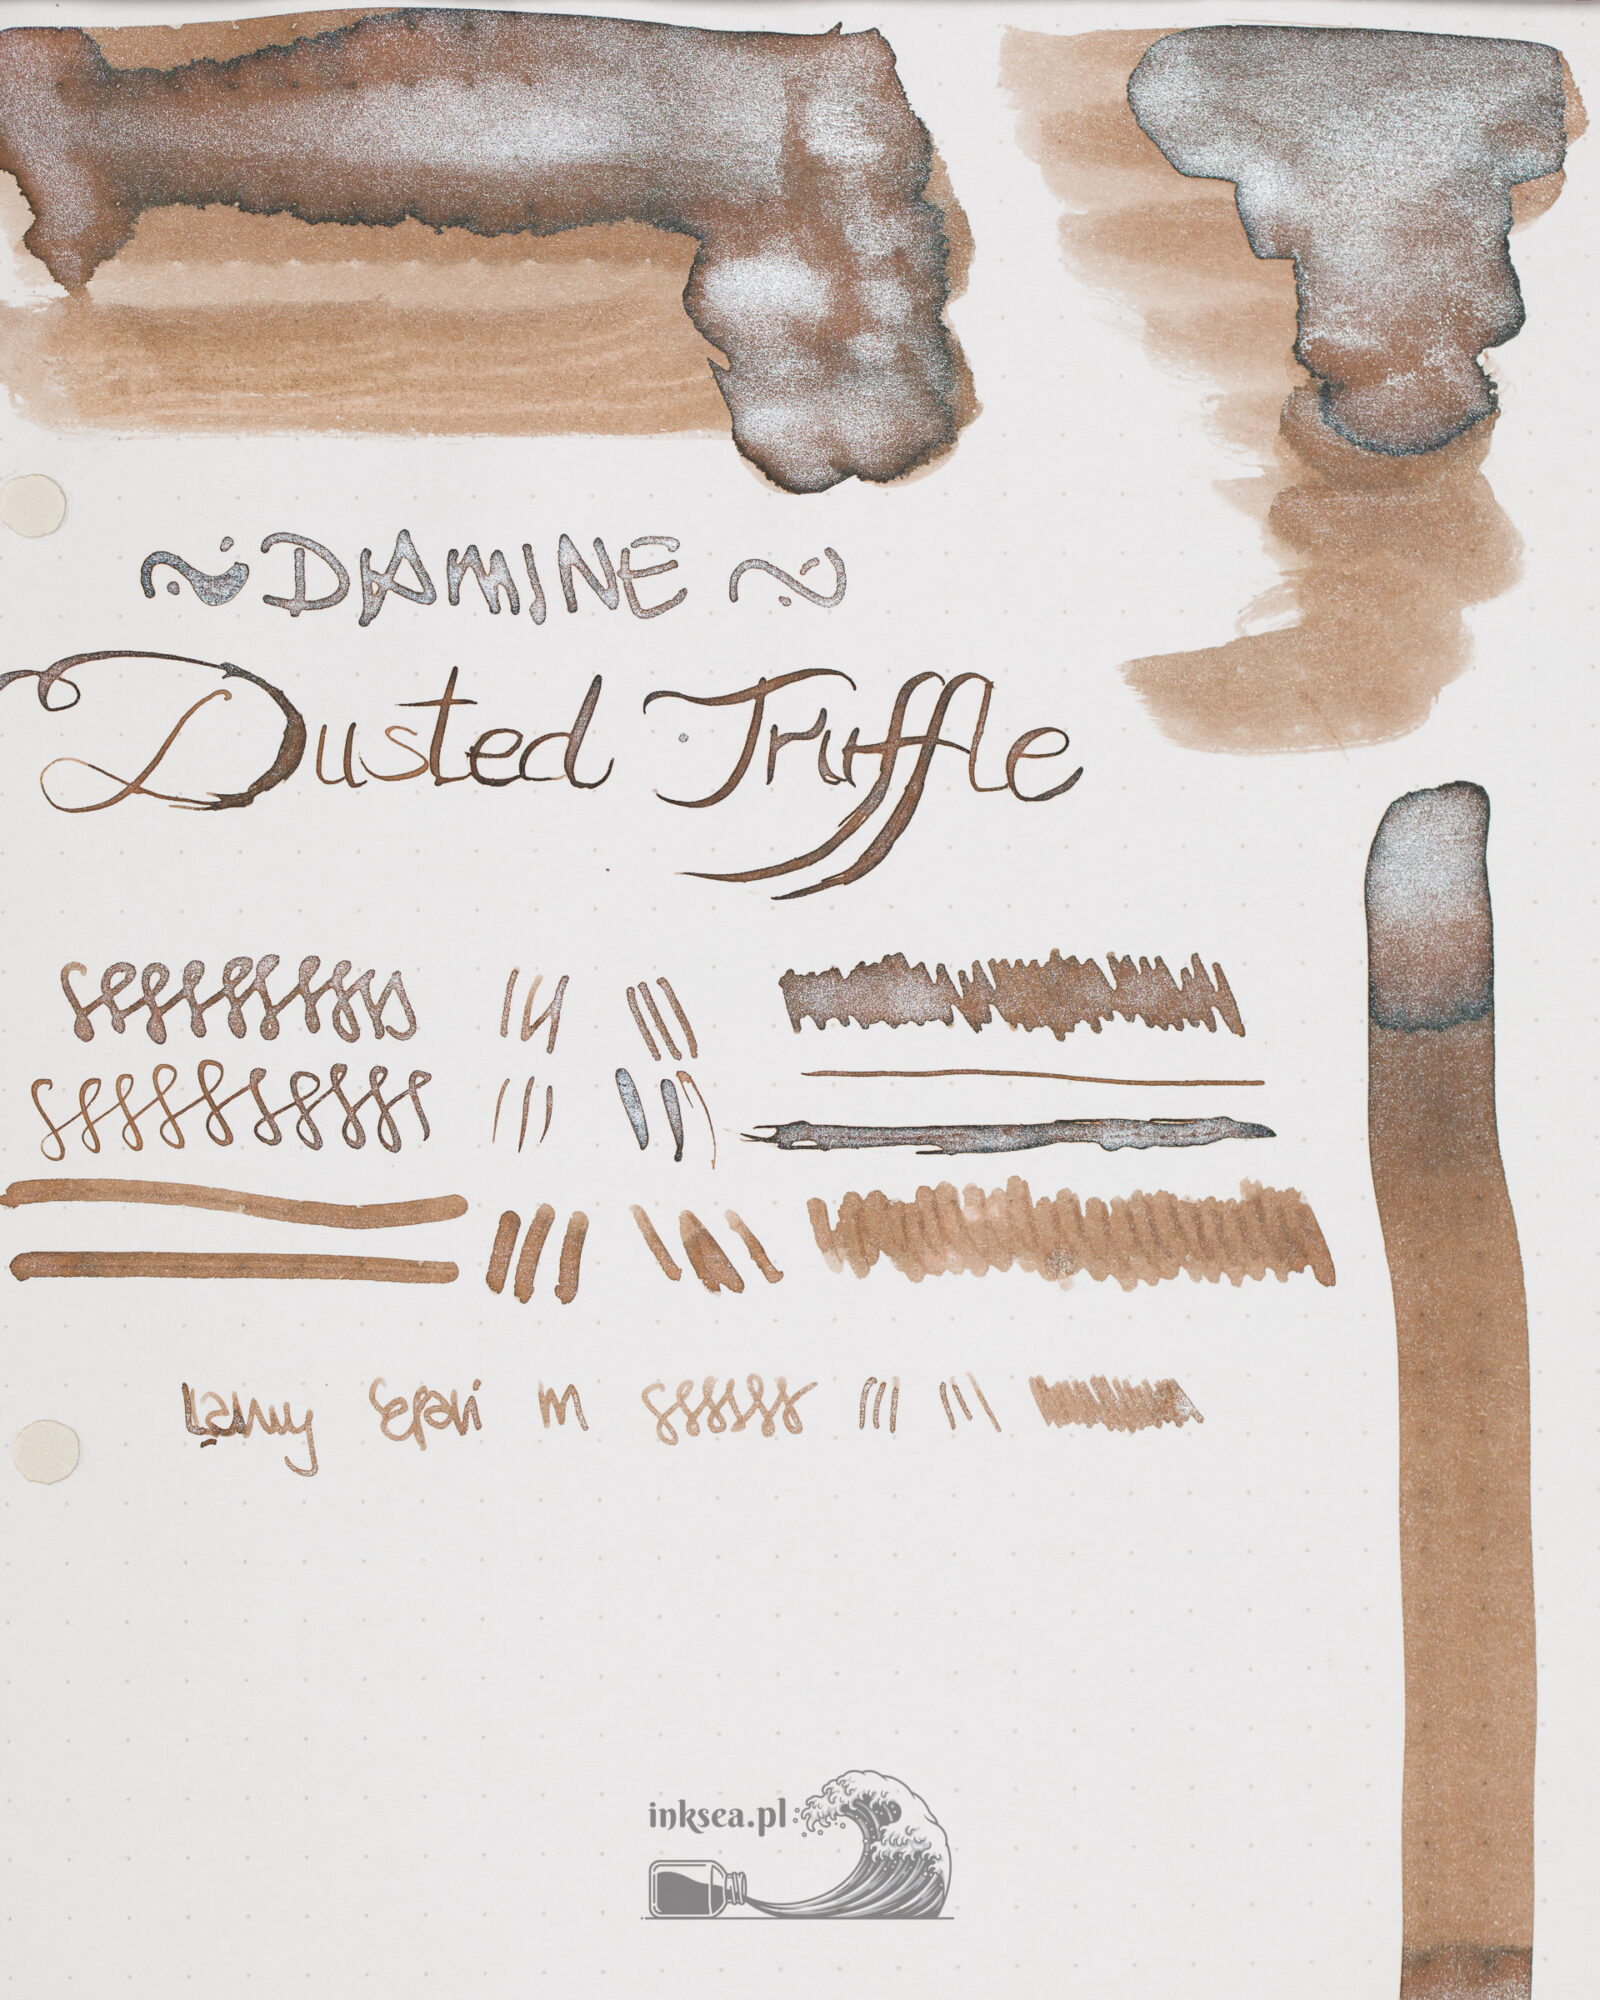 ~ DIAMINE ~
Dusted Truffle
Lamy Safari M
inksea.pl